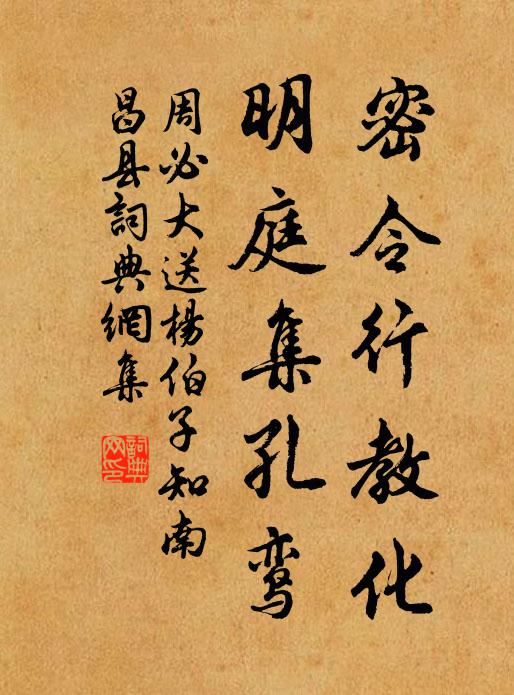 密令行教化
明庭集孔鸾
周必大送楊伯子知南
昌县詞典網集
詞典
网印